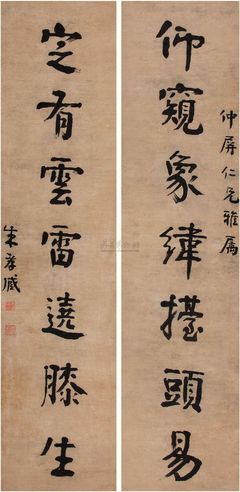 仲屏仁兄雅屬
仰窺象緯擡頭易
㝎有雲雷遶膝生
朱孝臧